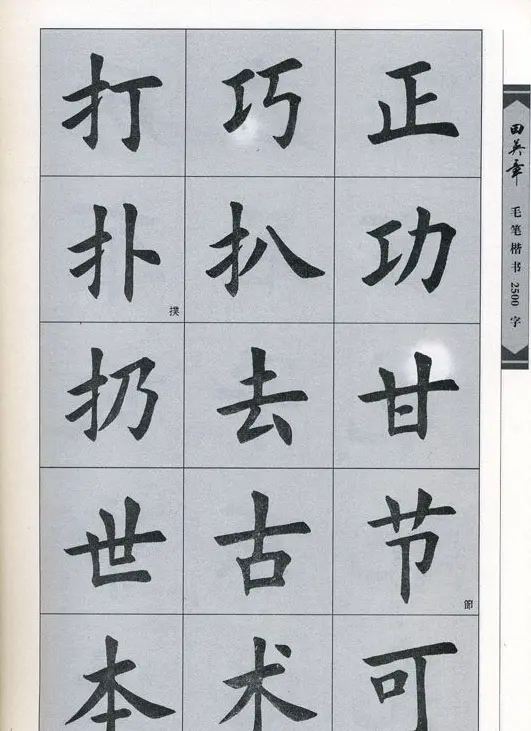 打 巧 正
扑 撲 扒 功
扔 去 甘
世 古 节 節
本 术 可
田英章 毛笔楷书 2500 字